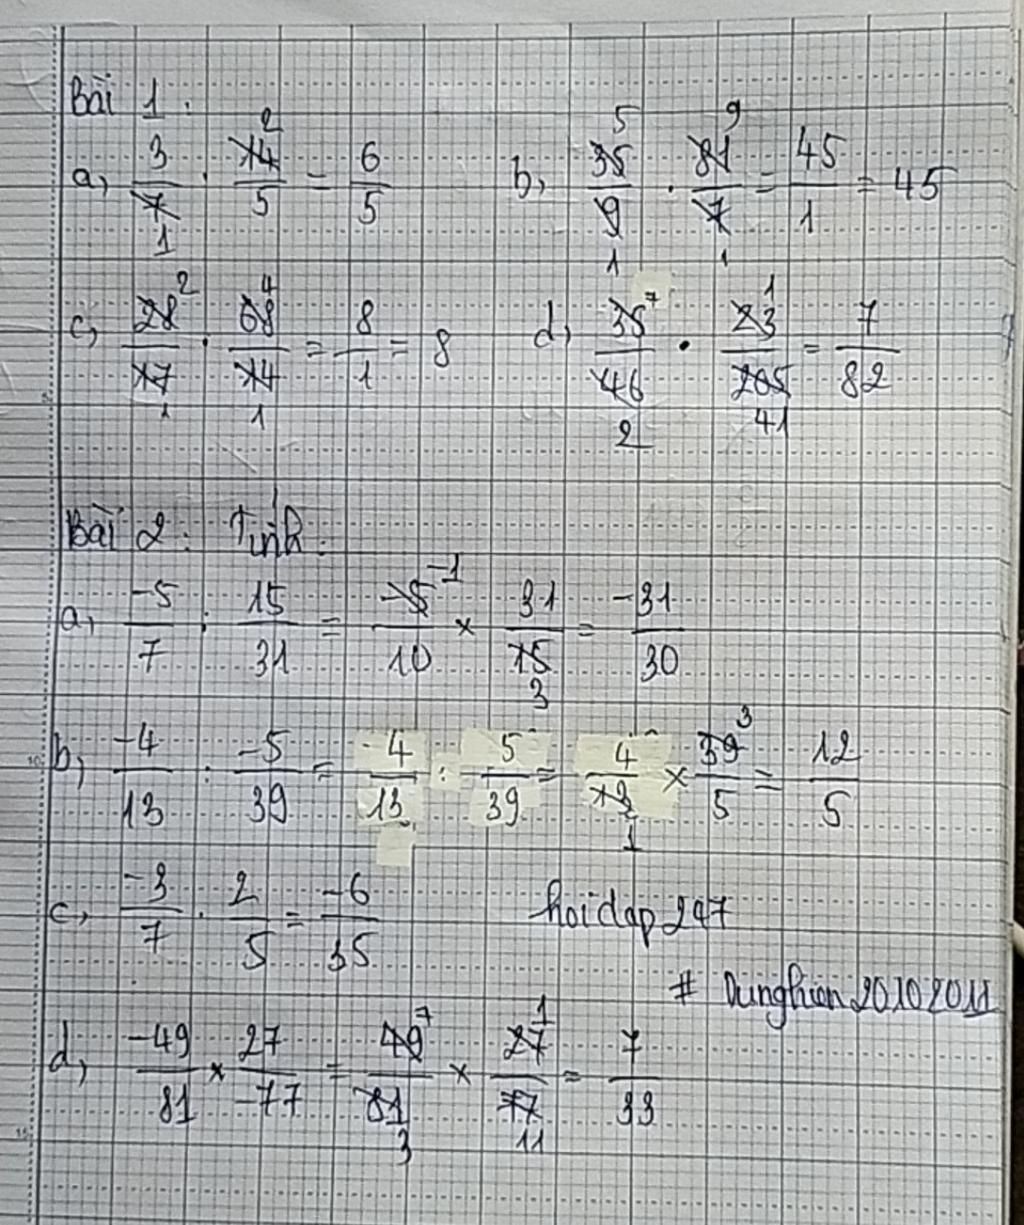 Bài 1:
a, 3/7 . 14/5 = 6/5 b, 35/9 . 81/7 = 45/1 = 45
c, 28/17 . 68/14 = 8/1 = 8 d, 35/46 . 23/205 = 7/82
Bài 2: Tính:
a, -5/7 : 15/31 = -5/10 × 31/15 = -31/30
b, -4/13 : -5/39 = -4/13 : -5/39 = 4/13 × 39/5 = 12/5
c, -3/7 . 2/5 = -6/35 hoidap247
# Dunghien20102011
d, -49/81 × 27/-77 = 49/81 × 27/77 = 7/33